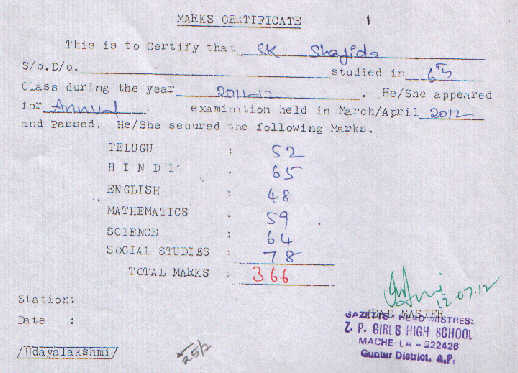 MARKS CERTIFICATE 1
This is to Certify that SK Shajida
S/o.D/o. studied in 6th
Class during the year 2011-12 . He/She appeared
for Annual examination held in March/April 2012
and Passed. He/She secured the following Marks.
TELUGU : 52
HINDI : 65
ENGLISH : 48
MATHEMATICS : 59
SCIENCE : 64
SOCIAL STUDIES : 78
TOTAL MARKS : 366
12.07.12
Station: HEAD MASTER
GAZETTED HEAD MISTRESS
Date : Z. P. GIRLS HIGH SCHOOL
MACHERLA - 522426
/Udayalakshmi/ Guntur District, A.P.